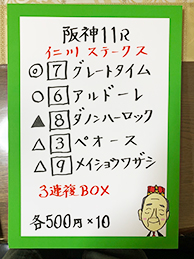 阪神11R
仁川ステークス
◎7グレートタイム
○6アルドーレ
▲8ダノンハーロック
△3ペオース
△9メイショウワザシ
3連複BOX
各500円×10